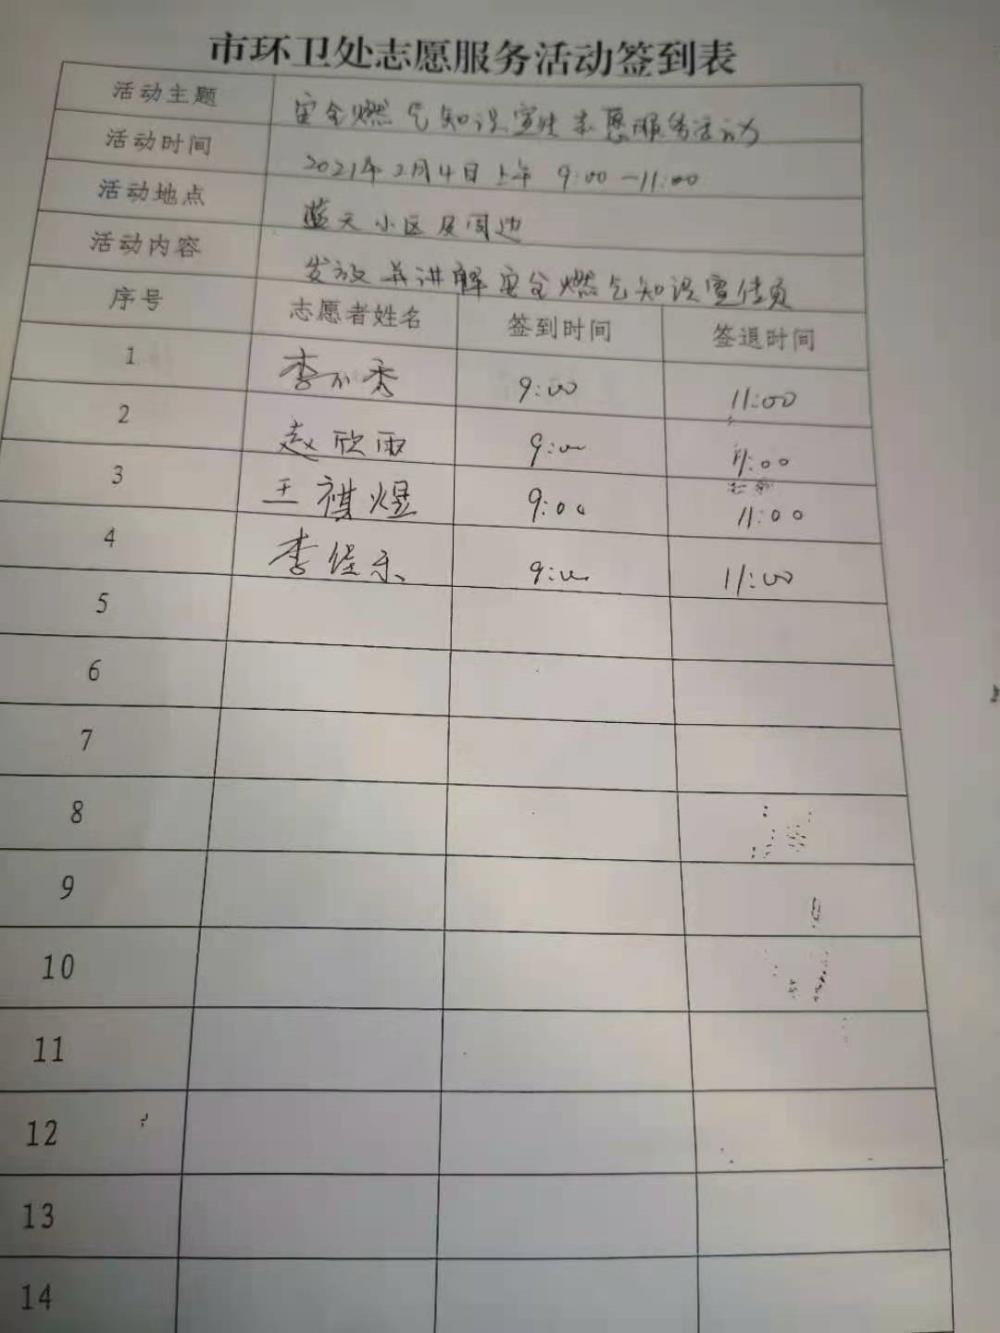 市环卫处志愿服务活动签到表
活动主题 安全燃气知识宣传志愿服务活动
活动时间 2021年2月4日上午 9:00-11:00
活动地点 蓝天小区及周边
活动内容 发放并讲解安全燃气知识宣传页
序号 志愿者姓名 签到时间 签退时间
1 李小秀 9:00 11:00
2 赵欣雨 9:00 11:00
3 王祺煜 9:00 11:00
4 李佳乐 9:00 11:00
5
6
7
8
9
10
11
12
13
14